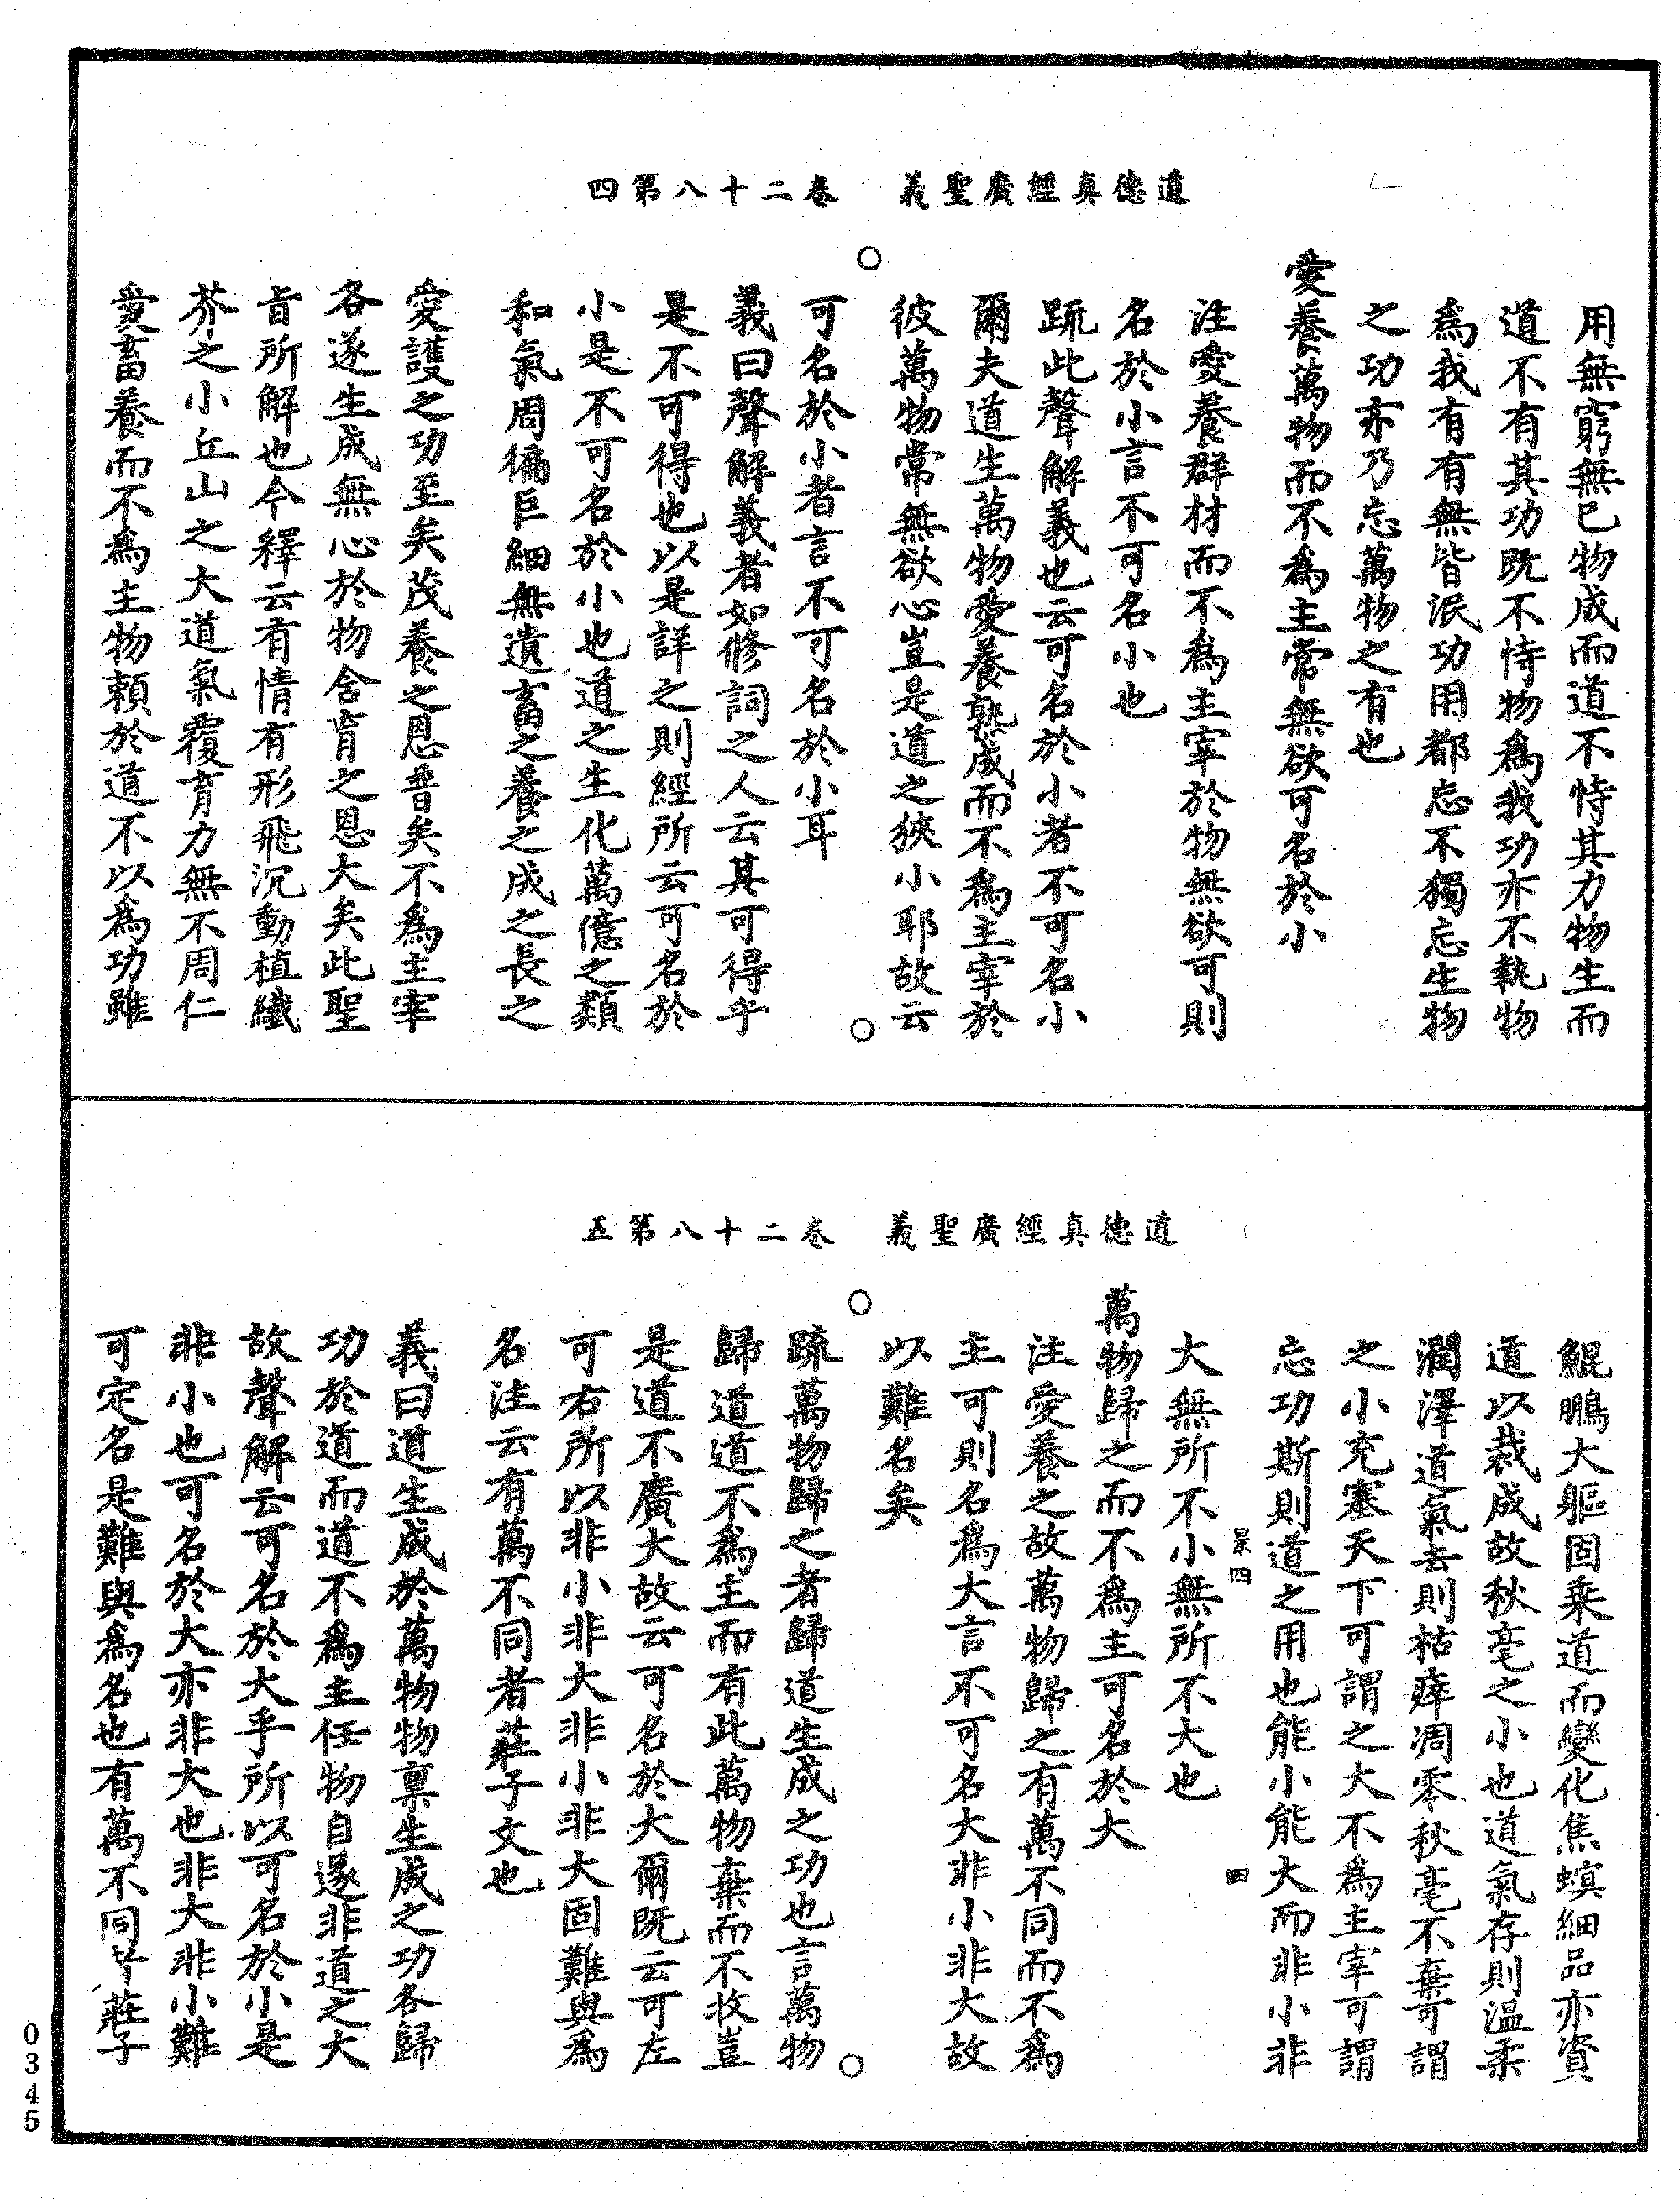 道德真經廣聖義　卷二十八第四
用無窮無已物成而道不恃其力物生而
道不有其功既不恃物為我功亦不執物
為我有有無皆泯功用都忘不獨忘生物
之功亦乃忘萬物之有也
愛養萬物而不為主常無欲可名於小
注愛養群材而不為主宰於物無欲可則
名於小言不可名小也
疏此聲解義也云可名於小者不可名小
爾夫道生萬物愛養熟成而不為主宰於
彼萬物常無欲心豈是道之狹小耶故云
可名於小者言不可名於小耳
義曰聲解義者如修詞之人云其可得乎
是不可得也以是詳之則經所云可名於
小是不可名於小也道之生化萬億之類
和氣周徧巨細無遺畜之養之成之長之
愛護之功至矣茂養之恩普矣不為主宰
各遂生成無心於物含育之恩大矣此聖
旨所解也今釋云有情有形飛沉動植纖
芥之小丘山之大道氣覆育力無不周仁
愛畜養而不為主物賴於道不以為功雖
道德真經廣聖義　卷二十八第五
鯤鵬大軀固乘道而變化焦螟細品亦資
道以裁成故秋毫之小也道氣存則溫柔
潤澤道氣去則枯瘁凋零秋毫不棄可謂
之小充塞天下可謂之大不為主宰可謂
忘功斯則道之用也能小能大而非小非
四
四
大無所不小無所不大也
萬物歸之而不為主可名於大
注愛養之故萬物歸之有萬不同而不為
主可則名為大言不可名大非小非大故
以難名矣
疏萬物歸之者歸道生成之功也言萬物
歸道道不為主而有此萬物棄而不收豈
是道不廣大故云可名於大爾既云可左
可右所以非小非大非小非大固難與為
名注云有萬不同者莊子文也
義曰道生成於萬物物稟生成之功各歸
功於道而道不為主任物自遂非道之大
故聲解云可名於大乎所以可名於小是
非小也可名於大亦非大也非大非小難
可定名是難與為名也有萬不同者莊子
0345